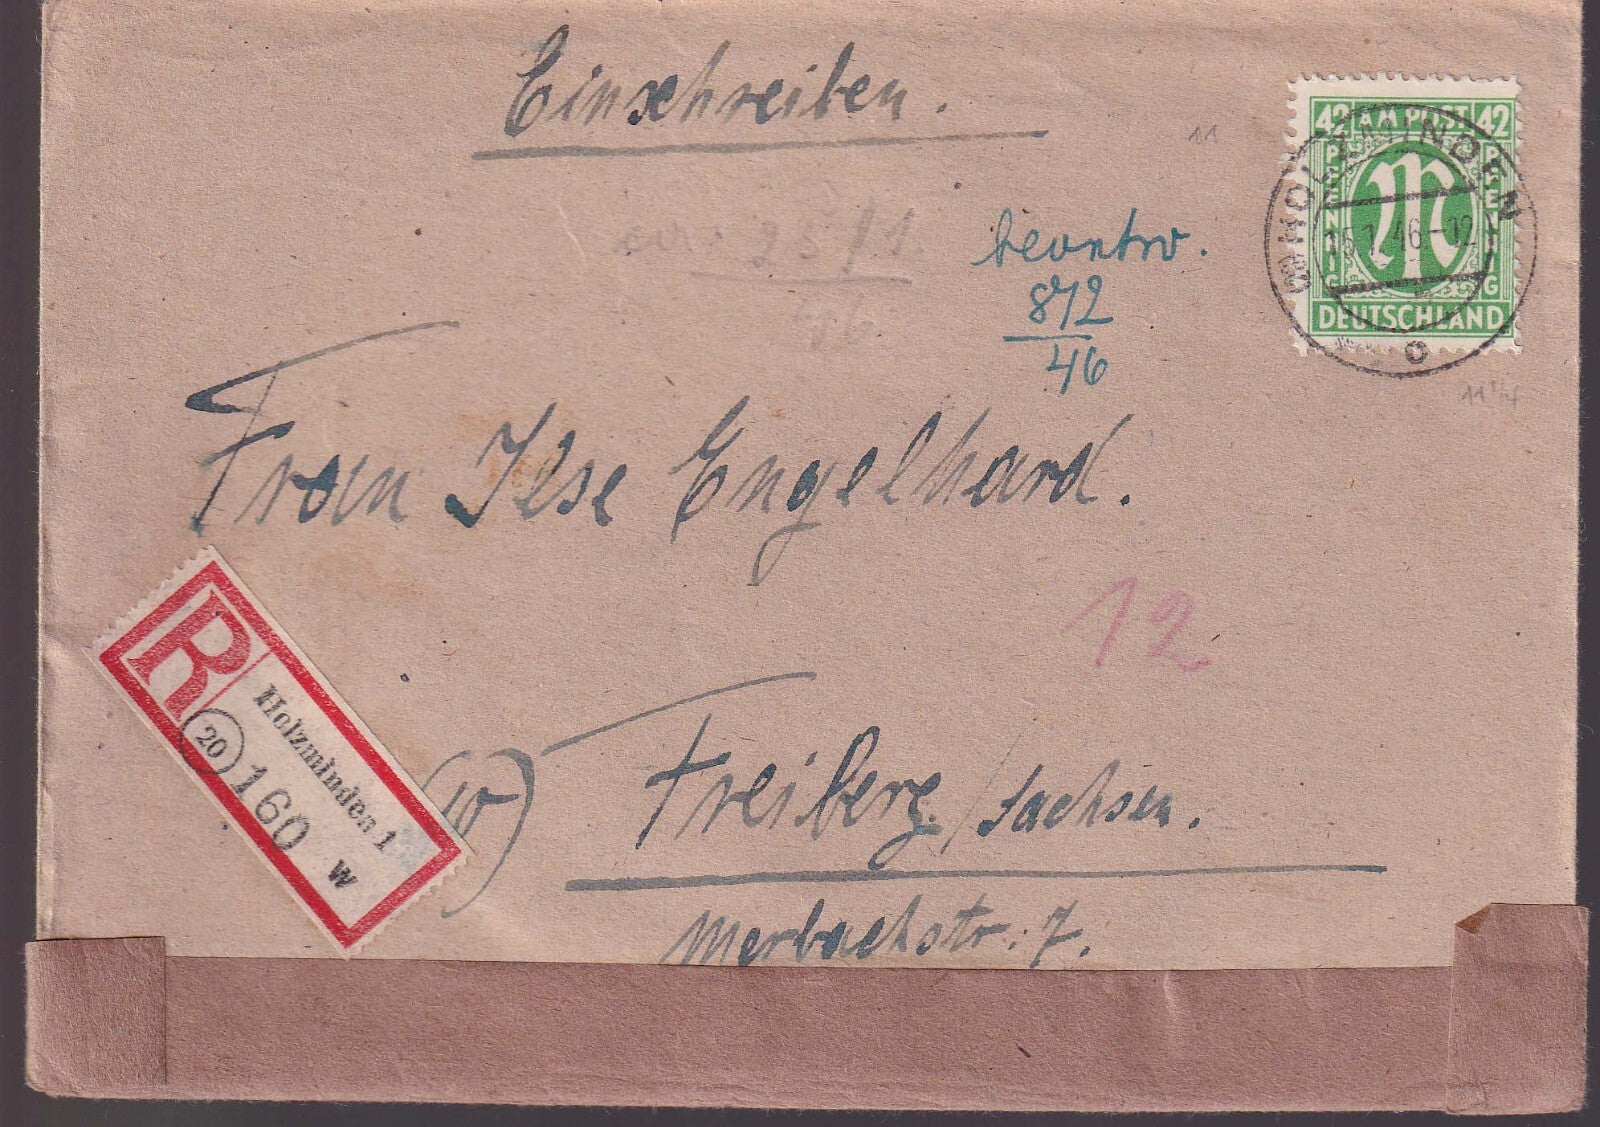 Einschreiben.
11
42 AM POST 42
PFENNIG
PFENNIG
M
DEUTSCHLAND
HOLZMINDEN
16.1.46-12
o
25/1
46
beantw.
8/2
46
11 1/4
Frau Ilse Engelhard.
12
R
Holzminden 1
20
160
w
(10)
Freiberg/Sachsen.
Merbachstr. 7.